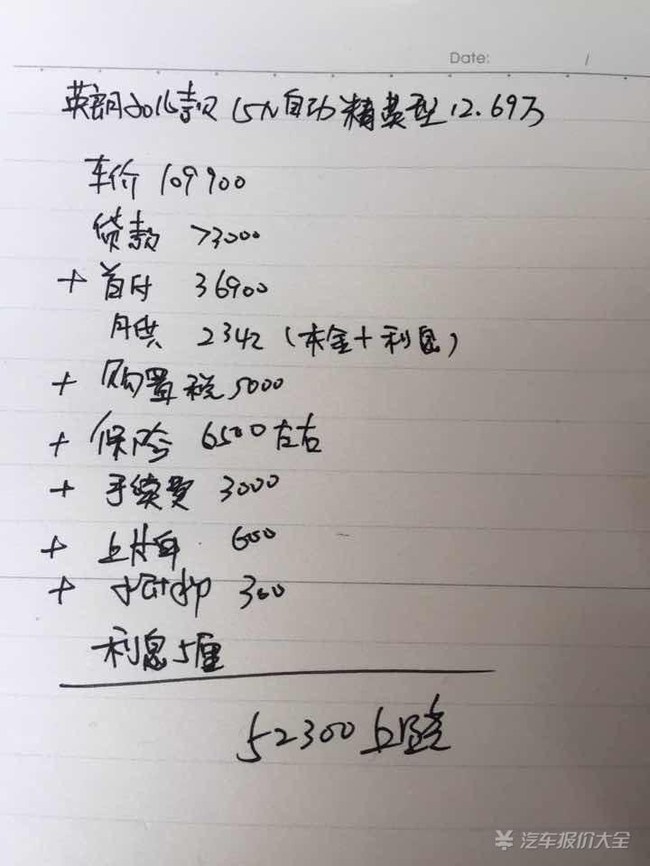 Date: /
英朗2016款 15N自动精英型12.69万
车价 109900
贷款 73000
+ 首付 36900
月供 2342 (本金+利息)
+ 购置税5000
+ 保险 6500左右
+ 手续费 3000
+ 上牌 600
+ 抵押 300
利息5厘
52300上路
¥ 汽车报价大全